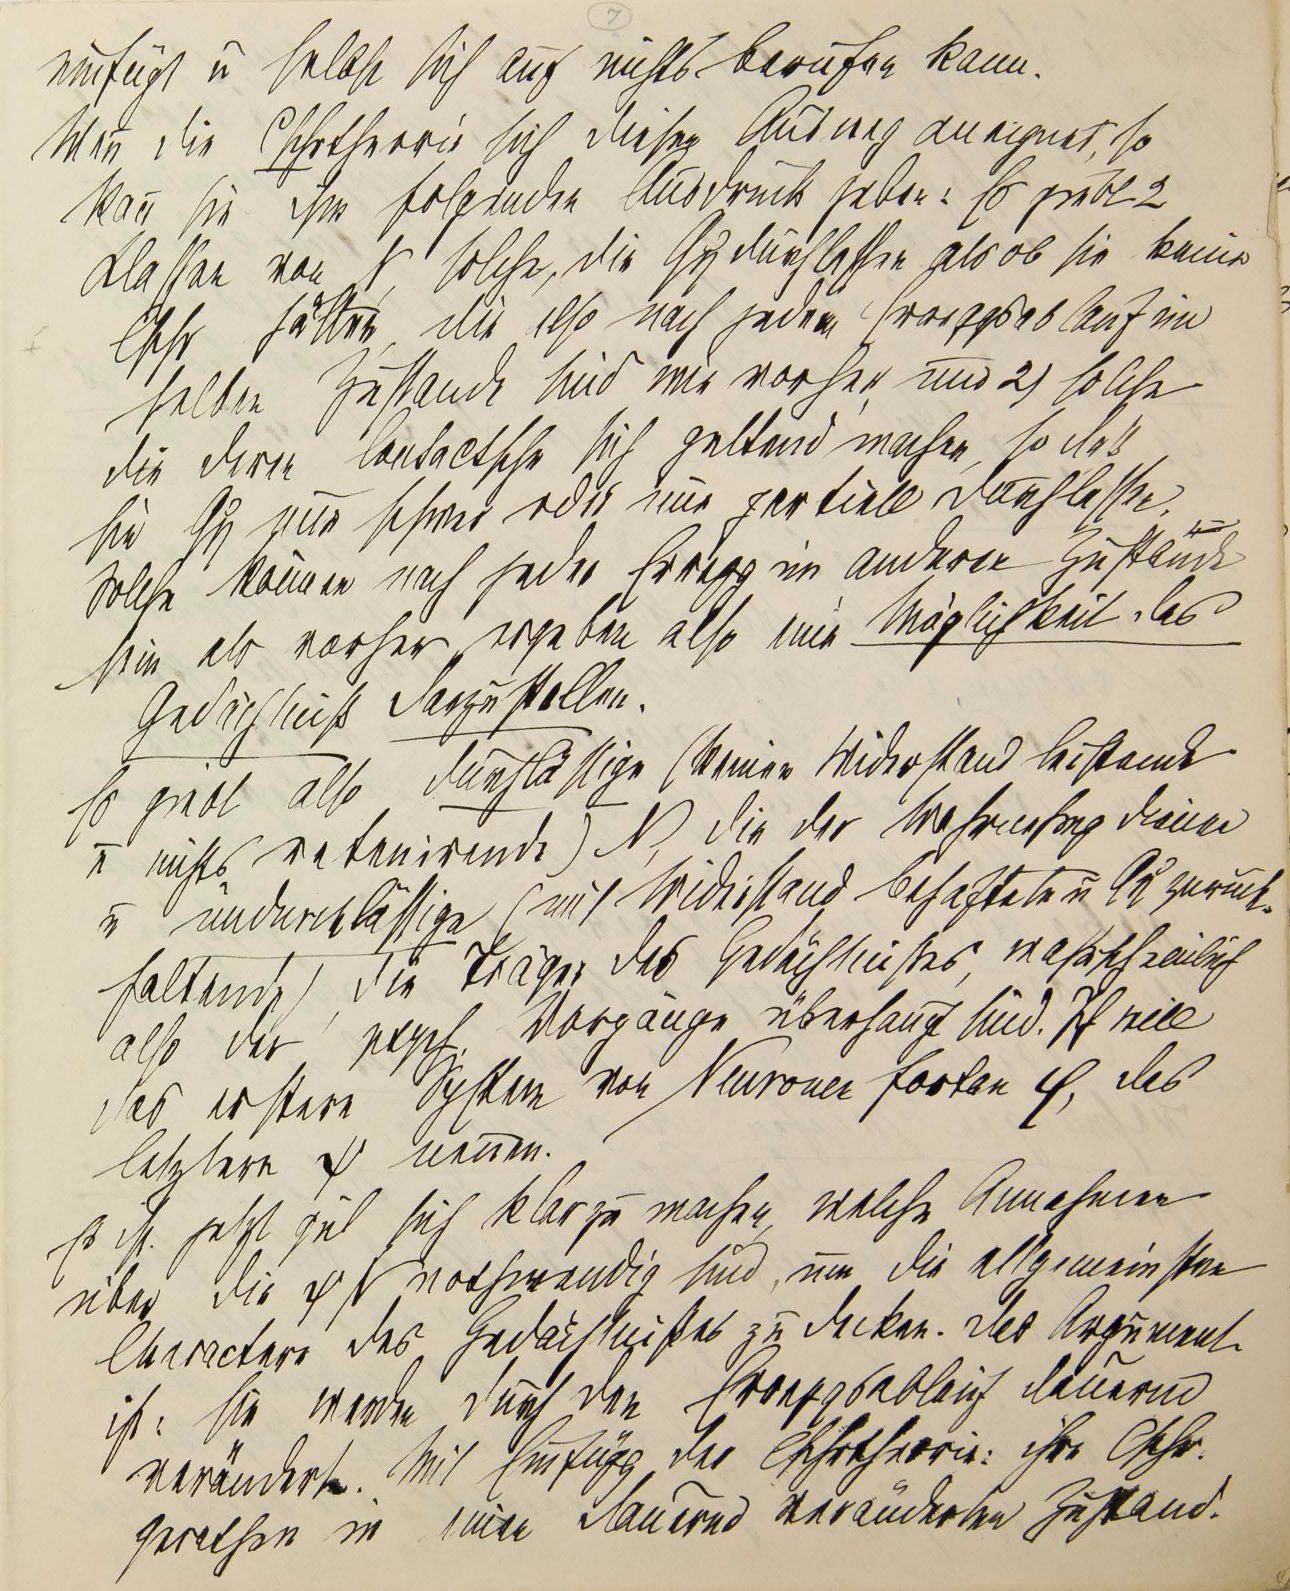 7
einfügt u selbst sich auf nichts berufen kann.
Wenn die Cschrtheorie sich diesen Ausweg aneignet, so
kan̄ sie ihm folgenden Ausdruck geben: Es giebt 2
Klassen von N, solche, die Qη durchlassen als ob sie keine
Cschr hätten, die also nach jedem Erreggsablauf im
selben Zustande sind wie vorher, und 2) solche
die deren Contactschr sich geltend machen, so daß
sie Qη nur schwer oder nur partiell durchlassen.
Solche können nach jeder Erregg in anderem Zustande
sein als vorher, ergeben also eine Möglichkeit das
Gedächtniß darzustellen.
Es giebt also durchlässige (keinen Widerstand leistende
u nichts retenirende) N, die der Wahrnehmg dienen
u undurchlässige (mit Widerstand behaftete u Qη zurück-
haltende), die Träger des Gedächtnißes, wahrscheinlich
also der psych. Vorgänge überhaupt sind. Ich will
das erstere System von Neuronen fortan φ, das
letztere ψ nennen.
Es ist jetzt gut sich klar zu machen, welche Annahmen
über die ψN nothwendig sind, um die allgemeinsten
Charactere des Gedächtnißes zu decken. Das Argument
ist: Sie werden durch den Erreggsablauf dauernd
verändert. Mit Einfügg der Cschrtheorie: ihre Cschr.
gerathen in einen dauernd veränderten Zustand.